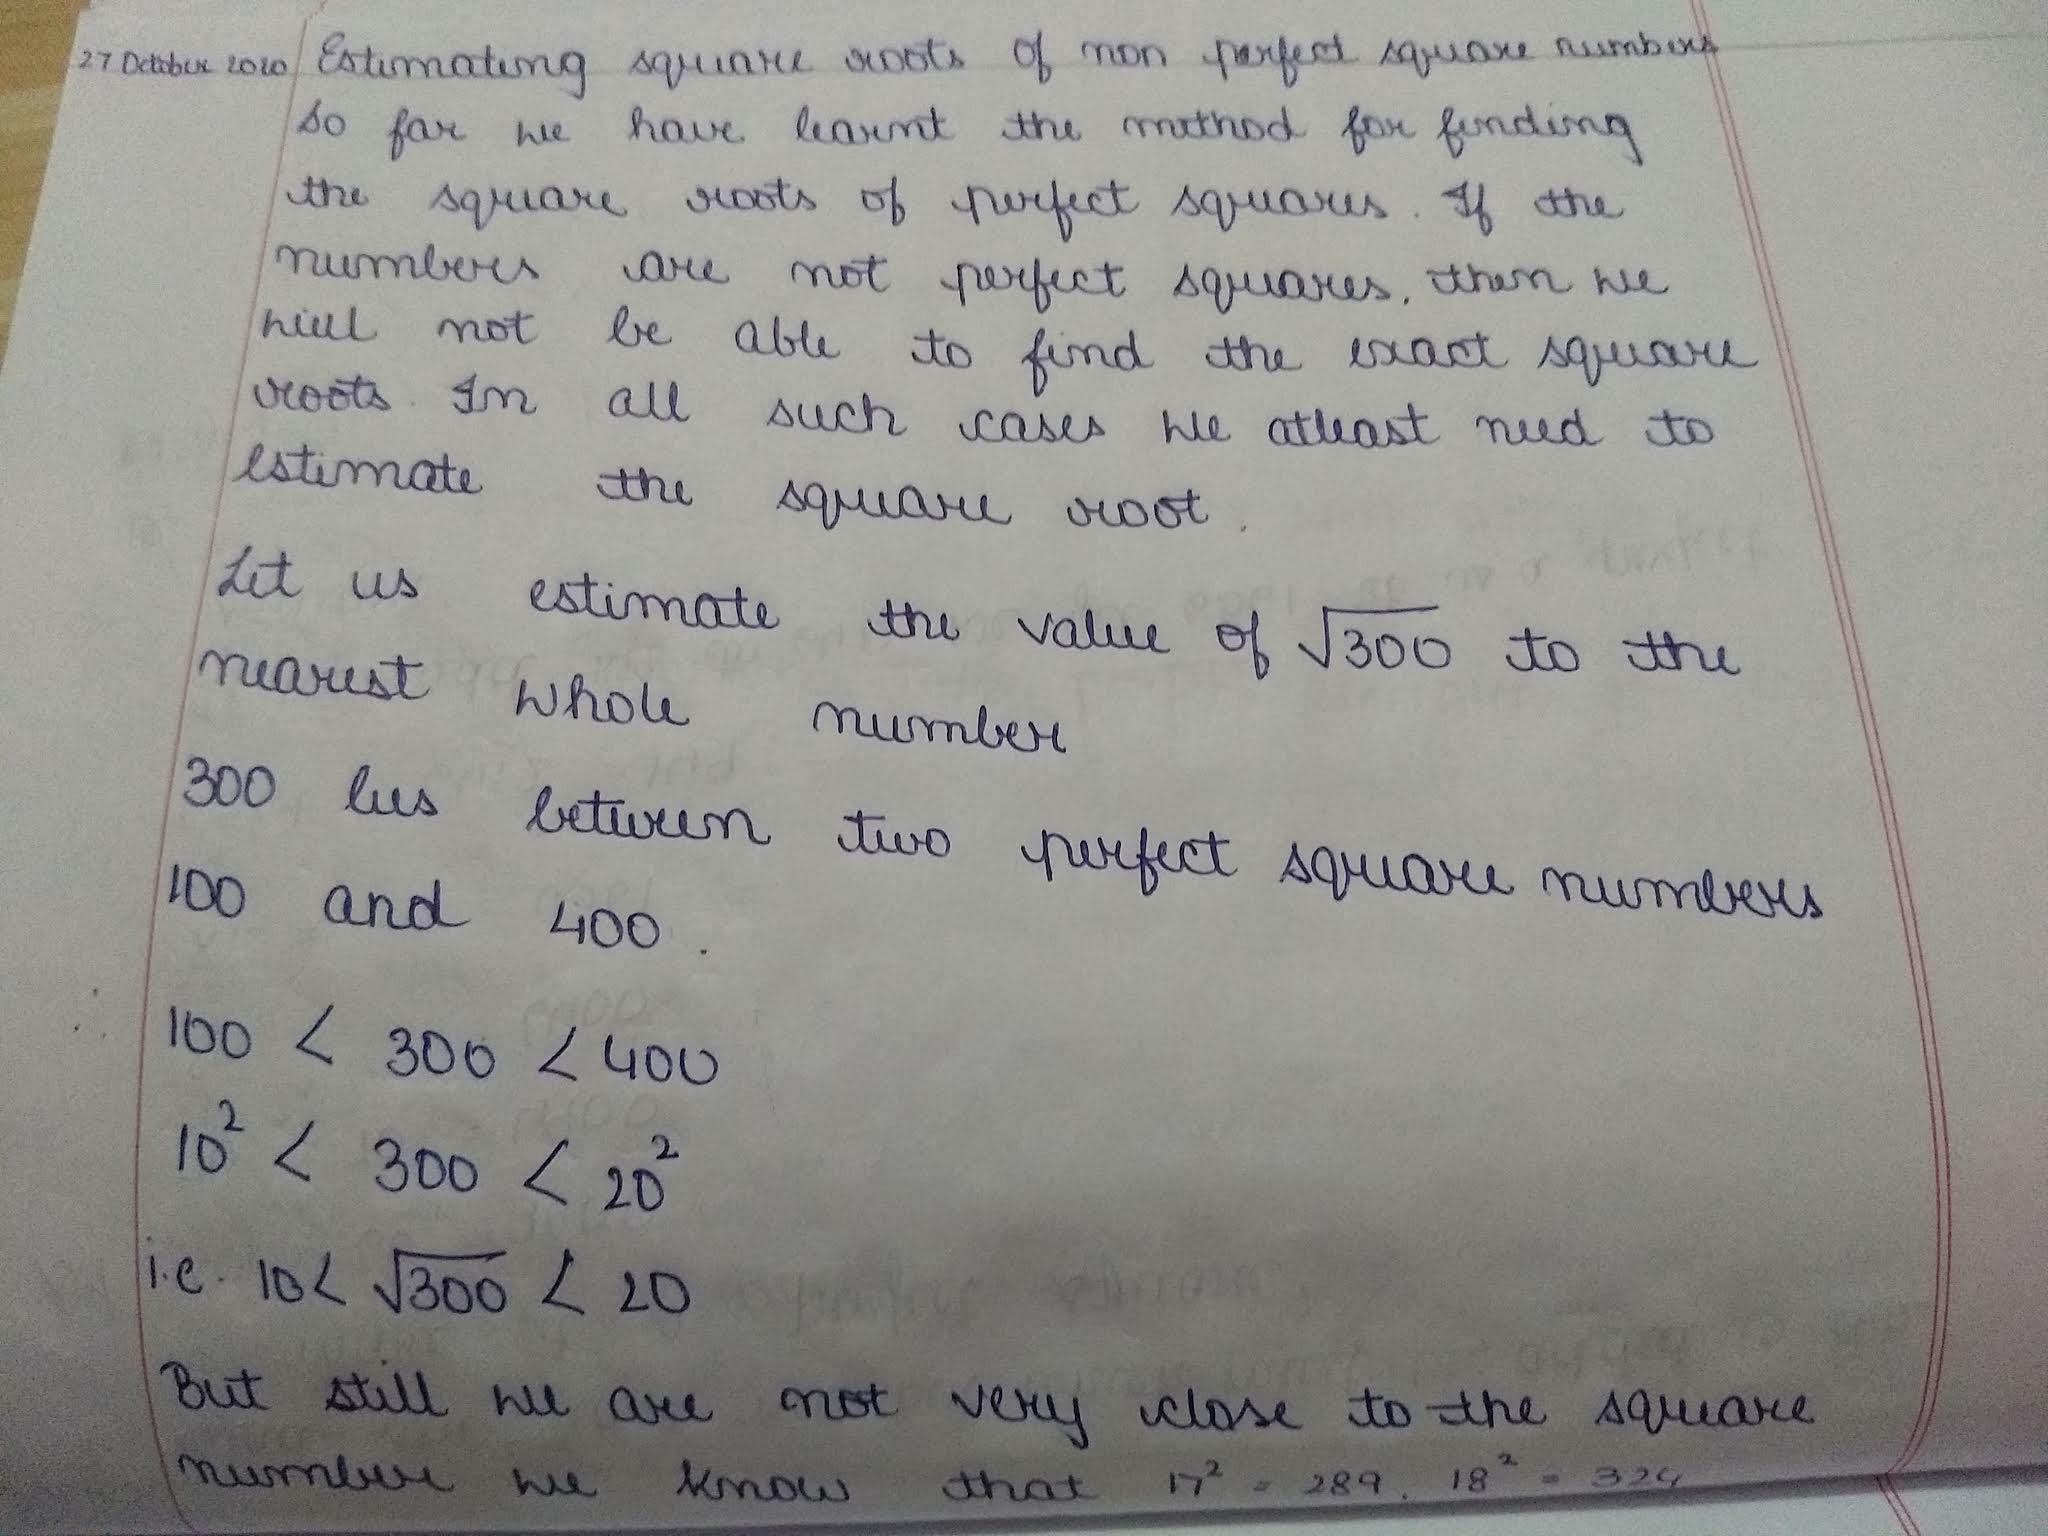 27 October 2020 Estimating square roots of non perfect square numbers
So far we have learnt the method for finding
the square roots of perfect squares. If the
numbers are not perfect squares, then we
will not be able to find the exact square
roots. In all such cases we atleast need to
estimate the square root.
Let us estimate the value of √300 to the
nearest whole number
300 lies between two perfect square numbers
100 and 400.
100 < 300 < 400
10² < 300 < 20²
i.e. 10 < √300 < 20
But still we are not very close to the square
number we know that 17² = 289. 18² = 324